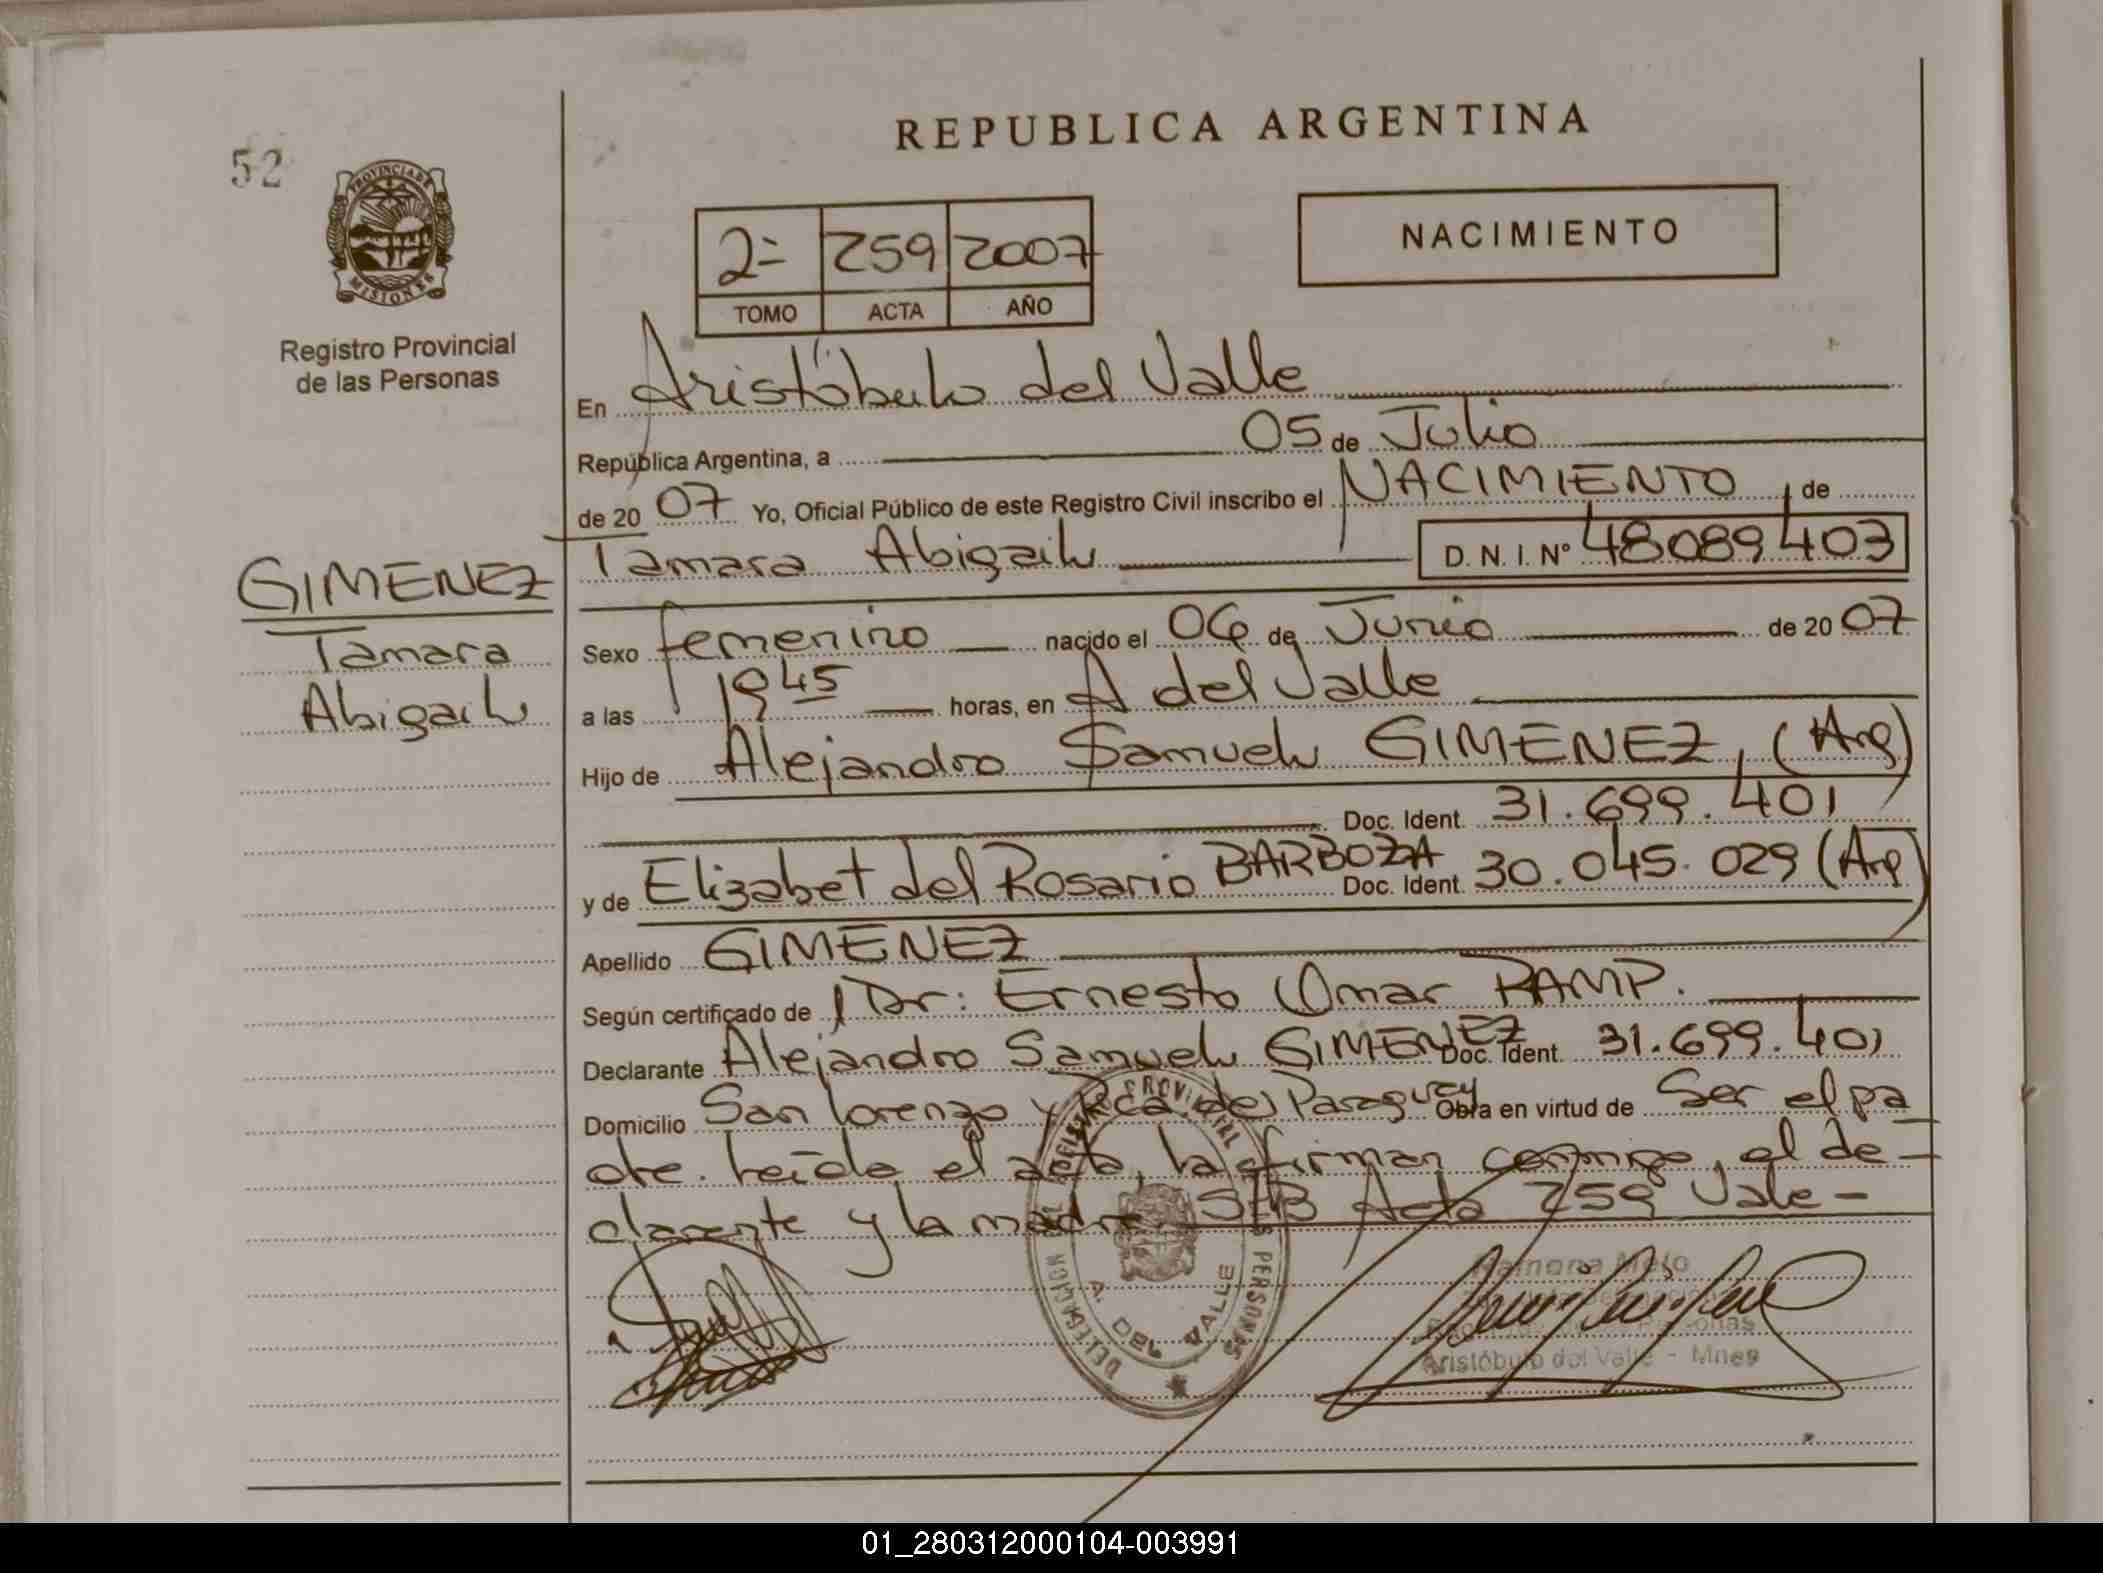 52
REPUBLICA ARGENTINA
PROVINCIA DE
MISIONES
Registro Provincial
de las Personas
2= 259 2007
TOMO ACTA AÑO
NACIMIENTO
En Aristóbulo del Valle
República Argentina, a 05 de Julio
de 20 07 Yo, Oficial Público de este Registro Civil inscribo el NACIMIENTO, de
Tamara Abigail D. N. I. Nº 48089403
GIMENEZ
Tamara
Abigail
Sexo femenino nacido el 06 de Junio de 20 07
a las 19 45 horas, en A del Valle
Hijo de Alejandro Samuel GIMENEZ, (Arg)
Doc. Ident. 31.699.401
y de Elizabet del Rosario BARBOZA Doc. Ident. 30.045.029 (Arg)
Apellido GIMENEZ
Según certificado de Dr: Ernesto Omar RAMP.
Declarante Alejandro Samuel GIMENEZ Doc. Ident. 31.699.401
Domicilio San Lorenzo y Pca del Paraguay Obra en virtud de Ser el pa
dre. Leída el acta, la firman conmigo, el de-
clarante y la madre. S/B Acta 259 Vale-
DELEGACION DEL PROVINCIAL PERSONAS
A. DEL VALLE
Ramona Melo
Personas
Aristóbulo del Valle - Mnes
01_280312000104-003991